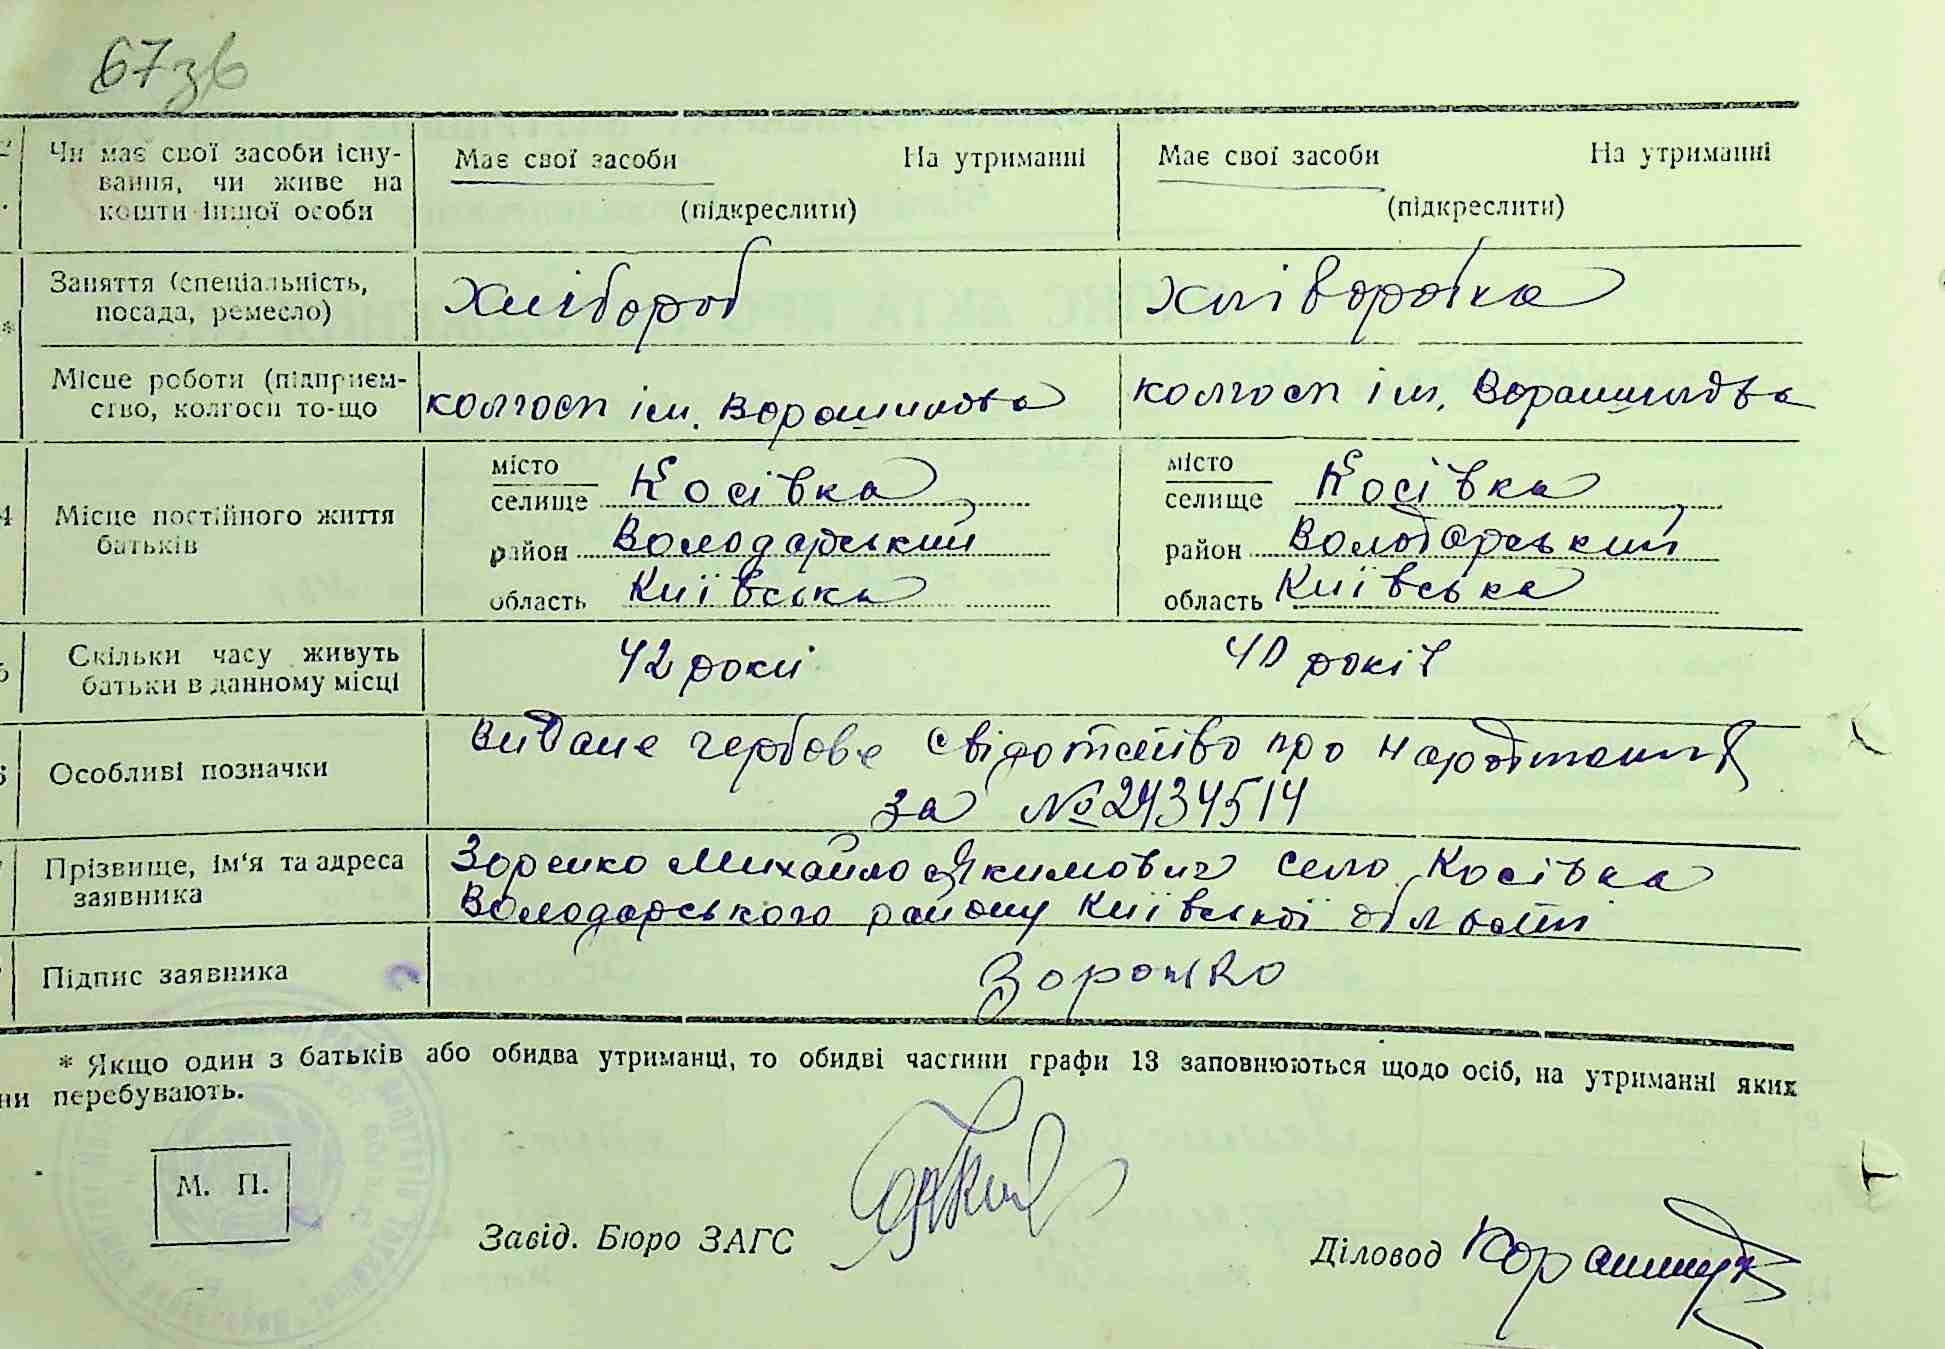 67зв
Чи має свої засоби існу-
вання, чи живе на
кошти іншої особи
Має свої засоби На утриманні
(підкреслити)
Має свої засоби На утриманні
(підкреслити)
Заняття (спеціальність,
посада, ремесло)
Хлібороб
Хліборобка
*
Місце роботи (підприєм-
ство, колгосп то-що
колгосп ім. Ворошилова
колгосп ім. Ворошилова
4
Місце постійного життя
батьків
місто
селище Косівка
район Володарський
область Київська
місто
селище Косівка
район Володарський
область Київська
5
Скільки часу живуть
батьки в данному місці
42 роки
40 років
6
Особливі позначки
Видане гербове свідотство про народження
за №2434514
Прізвище, ім'я та адреса
заявника
Зоренко Михайло Якимович село Косівка
Володарського району Київської області
Підпис заявника
Зоренко
* Якщо один з батьків або обидва утриманці, то обидві частини графи 13 заповнюються щодо осіб, на утриманні яких
ни перебувають.
М. П.
Завід. Бюро ЗАГС
Діловод